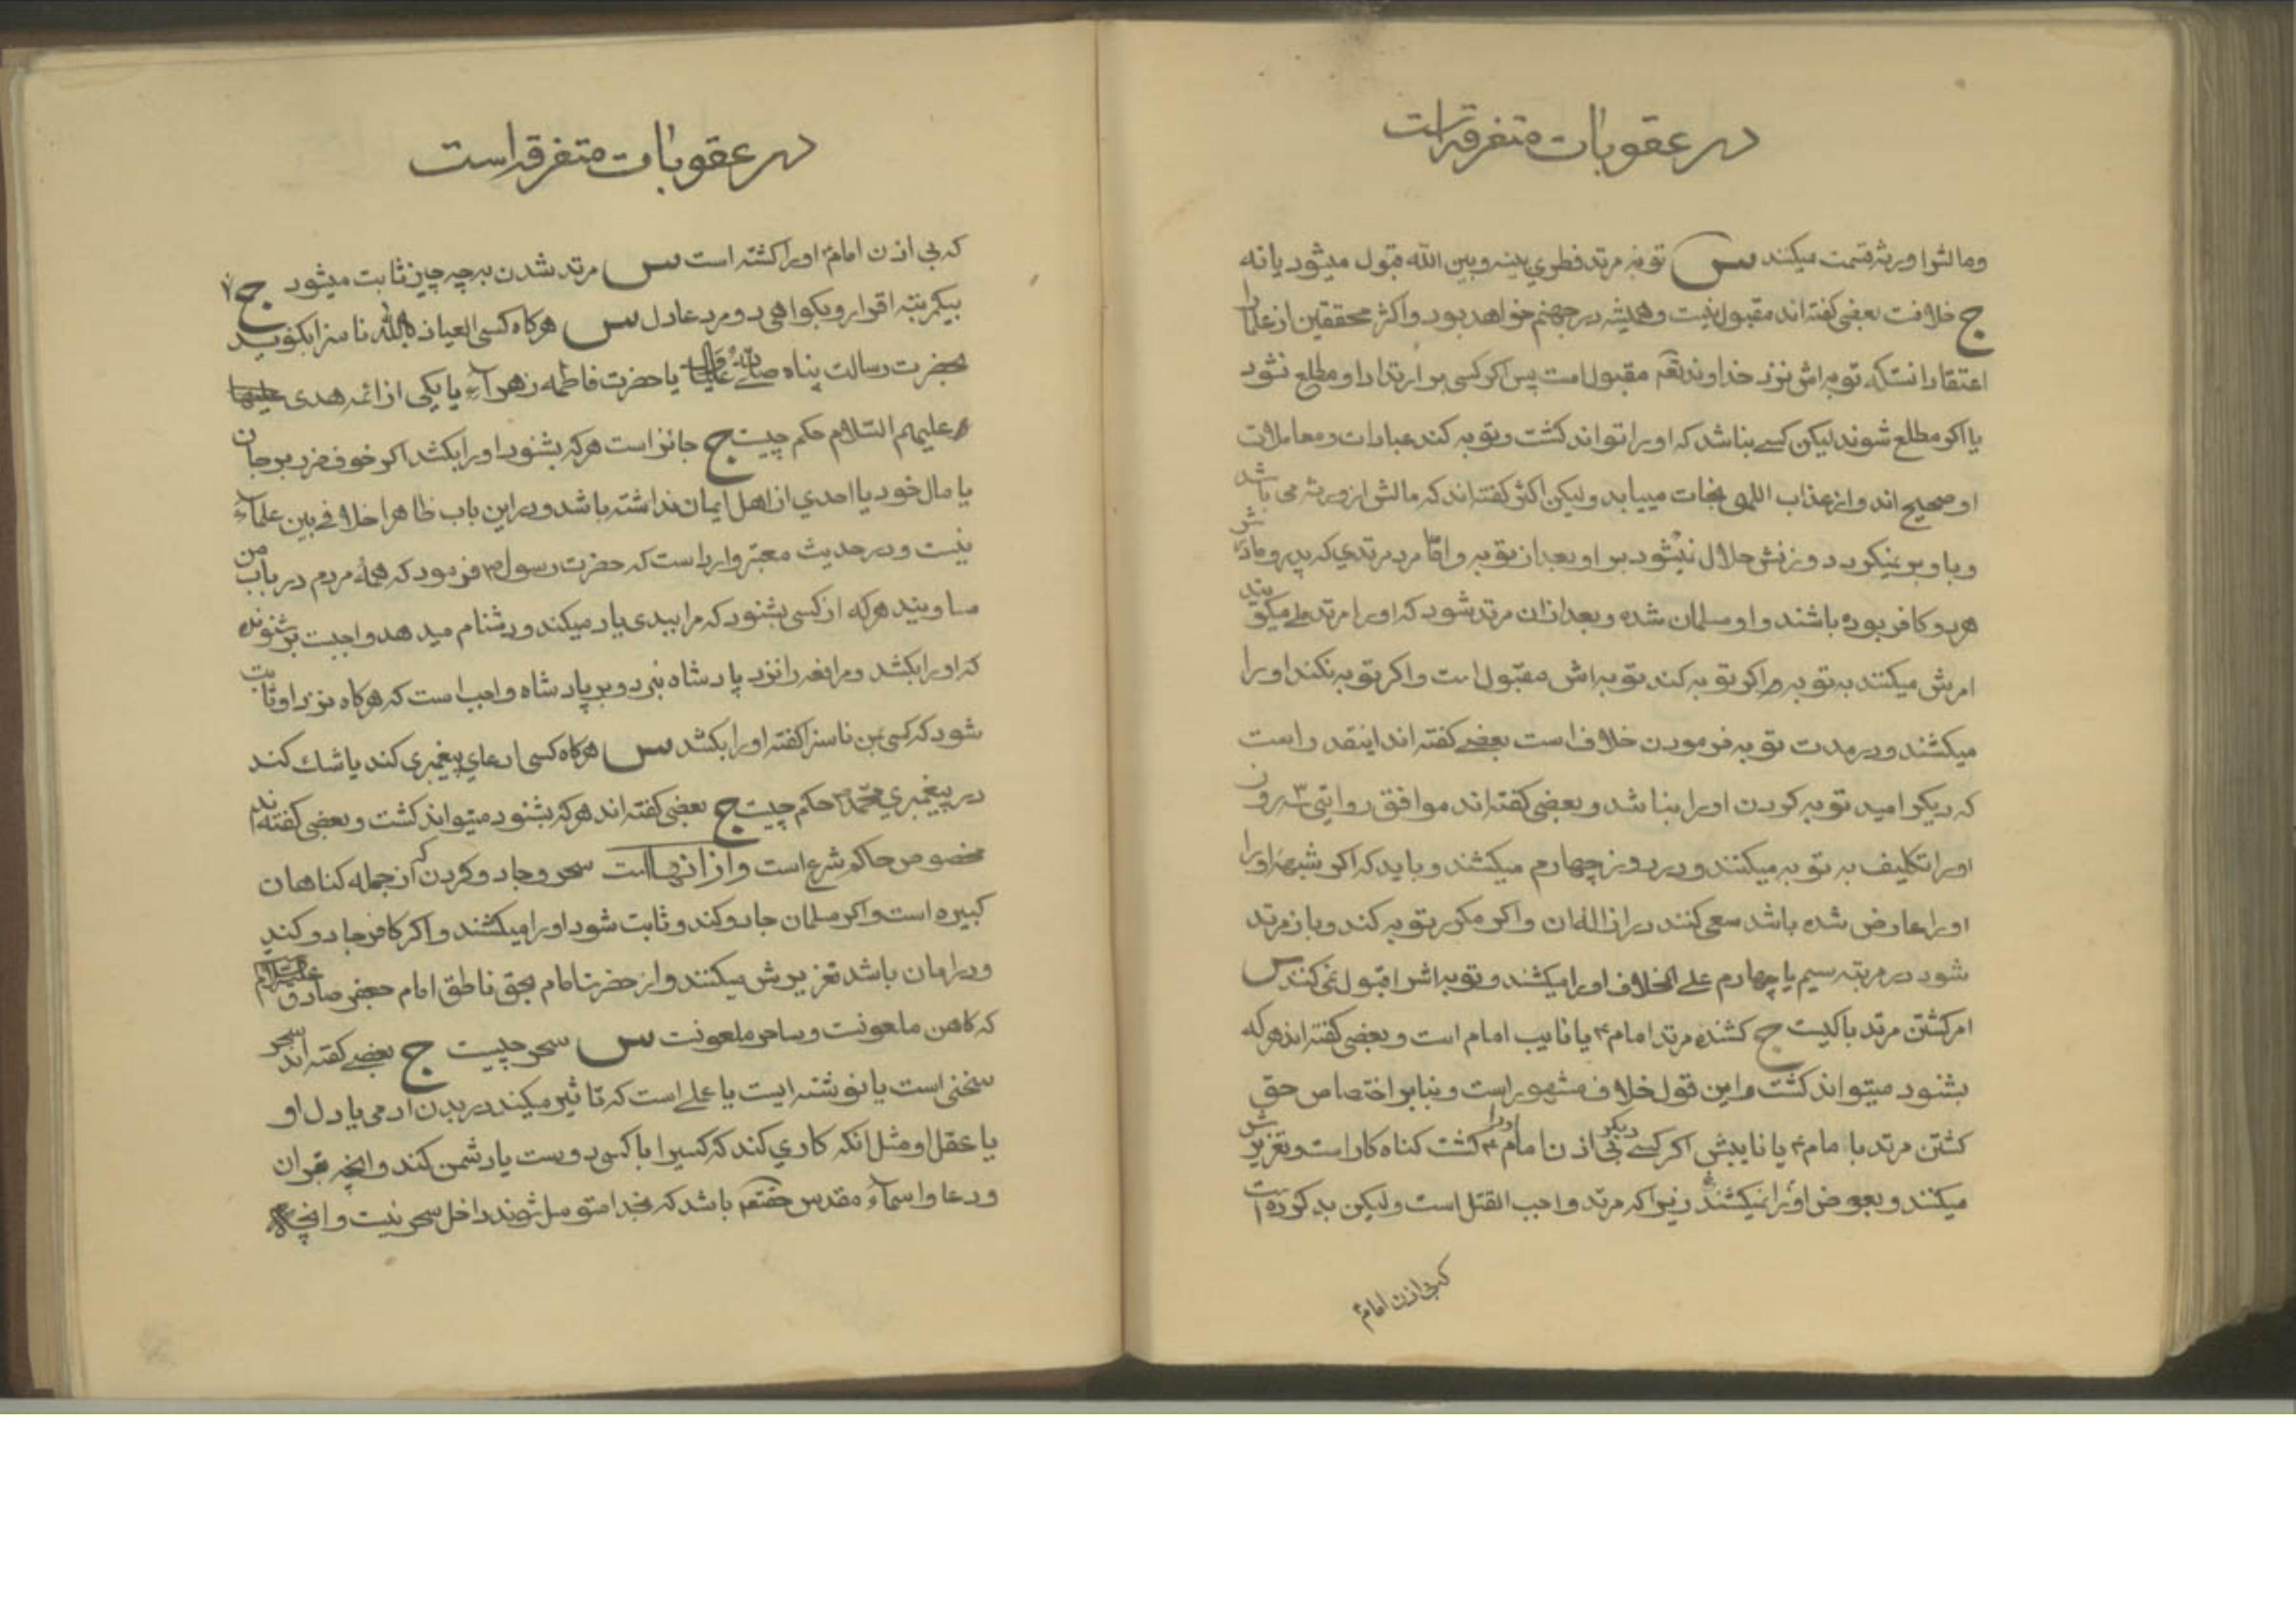 در عقوبات متفرقه است
ومالشرا ورثه قسمت میکنند س توبهٔ مرتد فطری بینه وبین الله قبول میشود یا نه
ج خلافست بعضی کفته اند مقبول نیست وهمیشه در جهنم خواهد بود واکثر محققین از علما را
اعتقاد انستکه توبه اش نزد خداوند مقبول است پس اکر کسی بر ارتداد او مطلع نشود
یا اکر مطلع شوند لیکن کسے نباشد که او را تواند کشت وتوبه کند عبادات ومعاملات
او صحیح اند واز عذاب الهی نجات مییابد ولیکن اکثر کفته اند که مالش از ورثه می باشد
وباو بر نمیکردد وزنش حلال نمیشود بر او بعد از توبه وامّا مرد مرتدی که پدر ومادرش
هر دو کافر بوده باشند واو مسلمان شده وبعد ازان مرتد شود که او را مرتد ملے میکویند
امرش میکنند به توبه واکر توبه کند توبه اش مقبول است واکر توبه نکند او را
میکشند ودر مدت توبه فرمودن خلاف است بعضے کفته اند اینقدر است
که دیکر امید توبه کردن او را نباشد وبعضی کفته اند موافق روایتی ۳ روز
او را تکلیف به توبه میکنند ودر روز چهارم میکشند وباید که اکر شبههٔ او را
او را عارض شده باشد سعی کنند در ازاله ان واکر مکرر توبه کند وباز مرتد
شود در مرتبه سیم یا چهارم علے الخلاف او را میکشند وتوبه اش را قبول نمی کنند س
امر کشتن مرتد با کیست ج کشنده مرتد امام ع یا نایب امام است وبعضی کفته اند هر که
بشنود میتواند کشت واین قول خلاف مشهور است وبنابر اختصاص حق
کشتن مرتد با مام ع یا نایبش اکر کسے دیکر بی اذن امام ع او را کشت کناه کار است وتعزیرش
میکنند وبعوض او را نمیکشند زیرا که مرتد واجب القتل است ولیکن بد کرده است
که بی اذن امام ع
در عقوبات متفرقه است
که بی اذن امام او را کشته است س مرتد شدن به چه چیز ثابت میشود ج
بیکمرتبه اقرار وبکواهی دو مرد عادل س هرکاه کسی العیاذ بالله ناسزا بکوید
بحضرت رسالت پناه صلی الله علیه واله یا حضرت فاطمه زهرآء یا یکی از ائمه هدی
علیهم السّلام حکم چیست ج جائز است هر که بشنود او را بکشد اکر خوف ضرر بر جان
یا مال خود یا احدی از اهل ایمان نداشته باشد ودر این باب ظاهرا خلافے بین علمآء
نیست ودر حدیث معتبر وارد است که حضرت رسول ص فرمود که همهٔ مردم در باب من
مساویند هر که از کسی بشنود که مرا ببدی یاد میکند ودشنام میدهد واجبست بر شنونده
که او را بکشد ومرافعه را نزد پادشاه نبرد وبر پادشاه واجب است که هرکاه نزد او ثابت
شود که کسی بمن ناسزا کفته او را بکشد س هرکاه کسی ادعای پیغمبری کند یا شك کند
در پیغمبری محمّد ص حکم چیست ج بعضی کفته اند هر که بشنود میتواند کشت وبعضی کفته اند
مخصوص حاکم شرع است واز انهااست سحر وجادو کردن که از جمله کناهان
کبیره است واکر مسلمان جادو کند وثابت شود او را میکشند واکر کافر جادو کند
ودر امان باشد تعزیرش میکنند واز حضرت امام بحق ناطق امام جعفر صادق علیه السلام
که کاهن ملعونست وساحر ملعونست س سحر چیست ج بعضے کفته اند سحر
سخنی است یا نوشته ایست یا عملے است که تاثیر میکند در بدن ادمی یا دل او
یا عقل او مثل انکه کاری کند که کسیرا با کسی دوست یا دشمن کند وانچه بقران
ودعا واسمآء مقدس باشد که بخدا متوسل شوند داخل سحر نیست وانچه